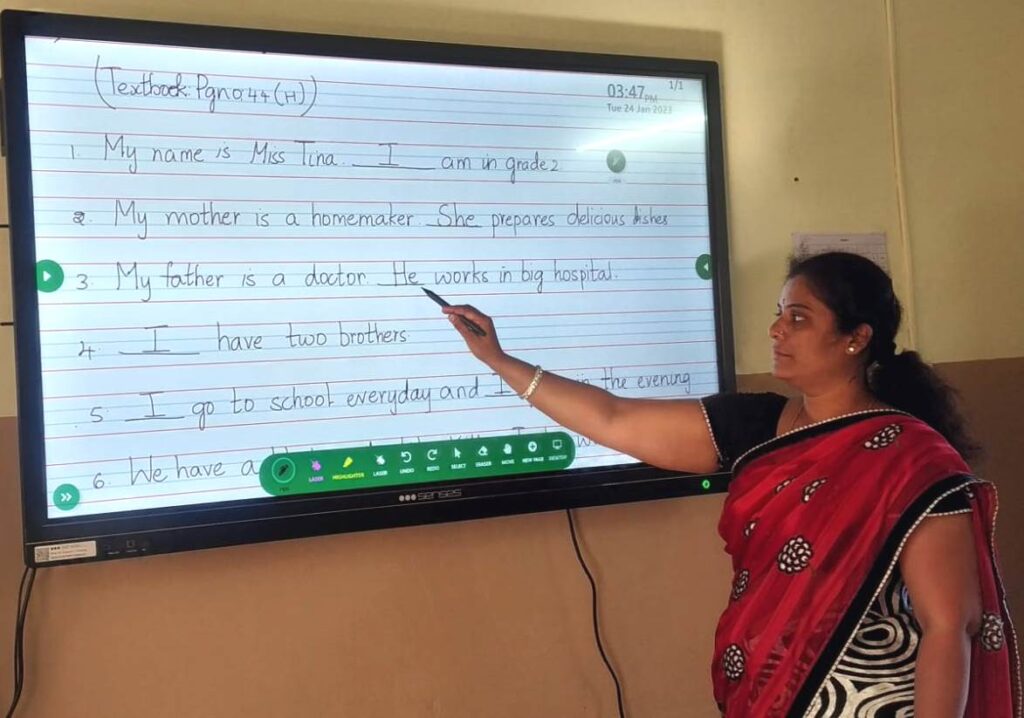 (Textbook: Pgno.44 (H))
03:47 PM
1/1
Tue 24 Jan 2023
1. My name is Miss Tina. I am in grade 2
2. My mother is a homemaker. She prepares delicious dishes
3. My father is a doctor. He works in big hospital.
4. I have two brothers
5. I go to school everyday and I in the evening
6. We have a
PEN LASER HIGHLIGHTER LASER UNDO REDO SELECT ERASER MOVE NEW PAGE DESKTOP
senses